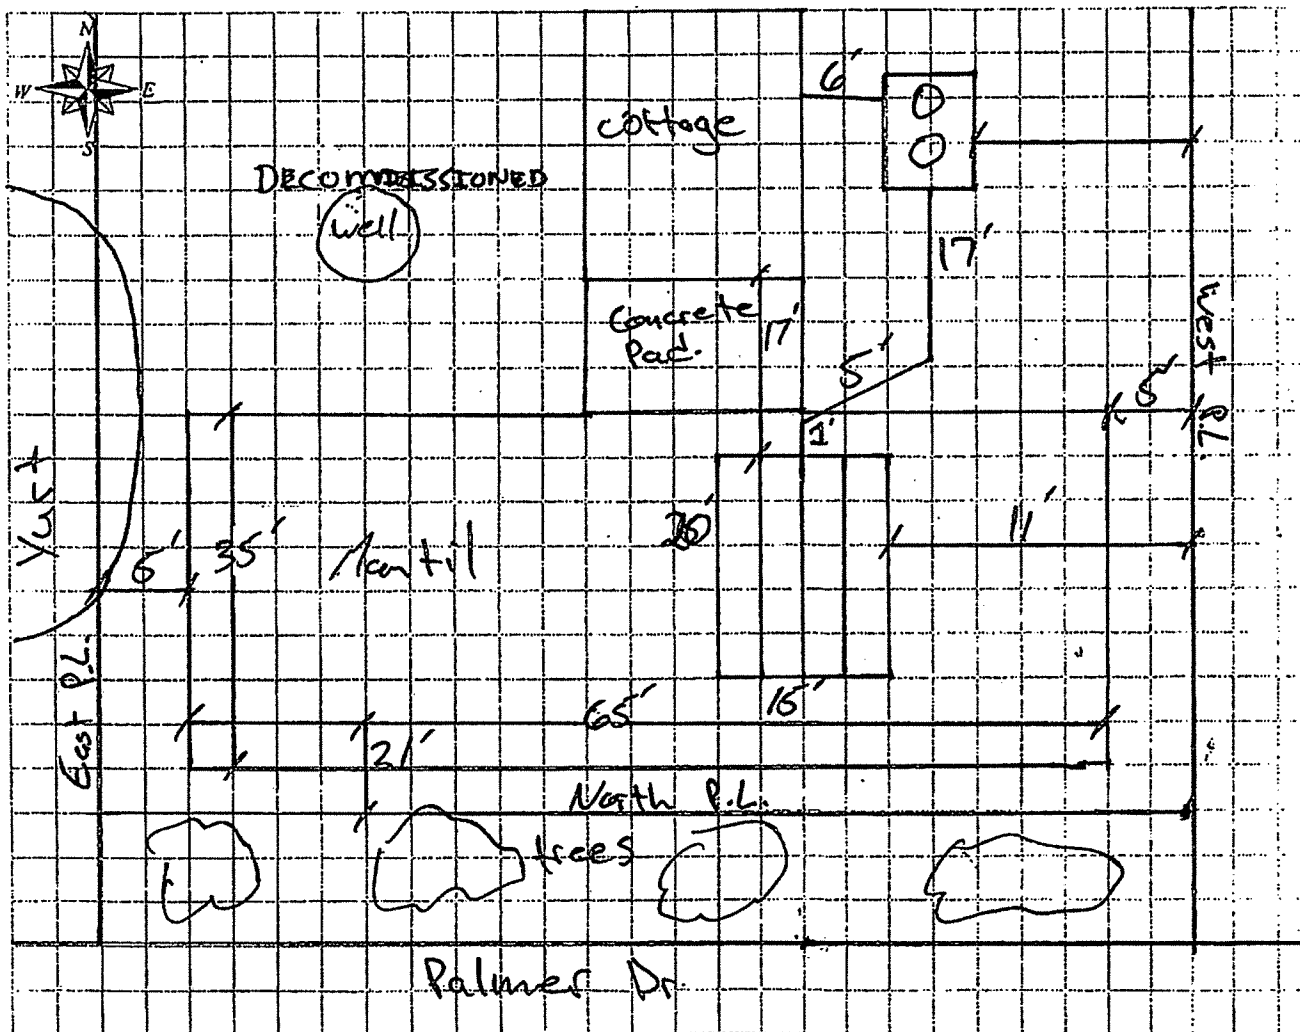 N
W E
S
6'
cottage
DECOMMISSIONED
well
17'
Concrete
Pad.
17'
5'
5'
1'
West P.L.
Yurt
6'
35'
Mantil
20'
11'
East P.L.
65'
15'
21'
North P.L.
trees
Palmer Dr.